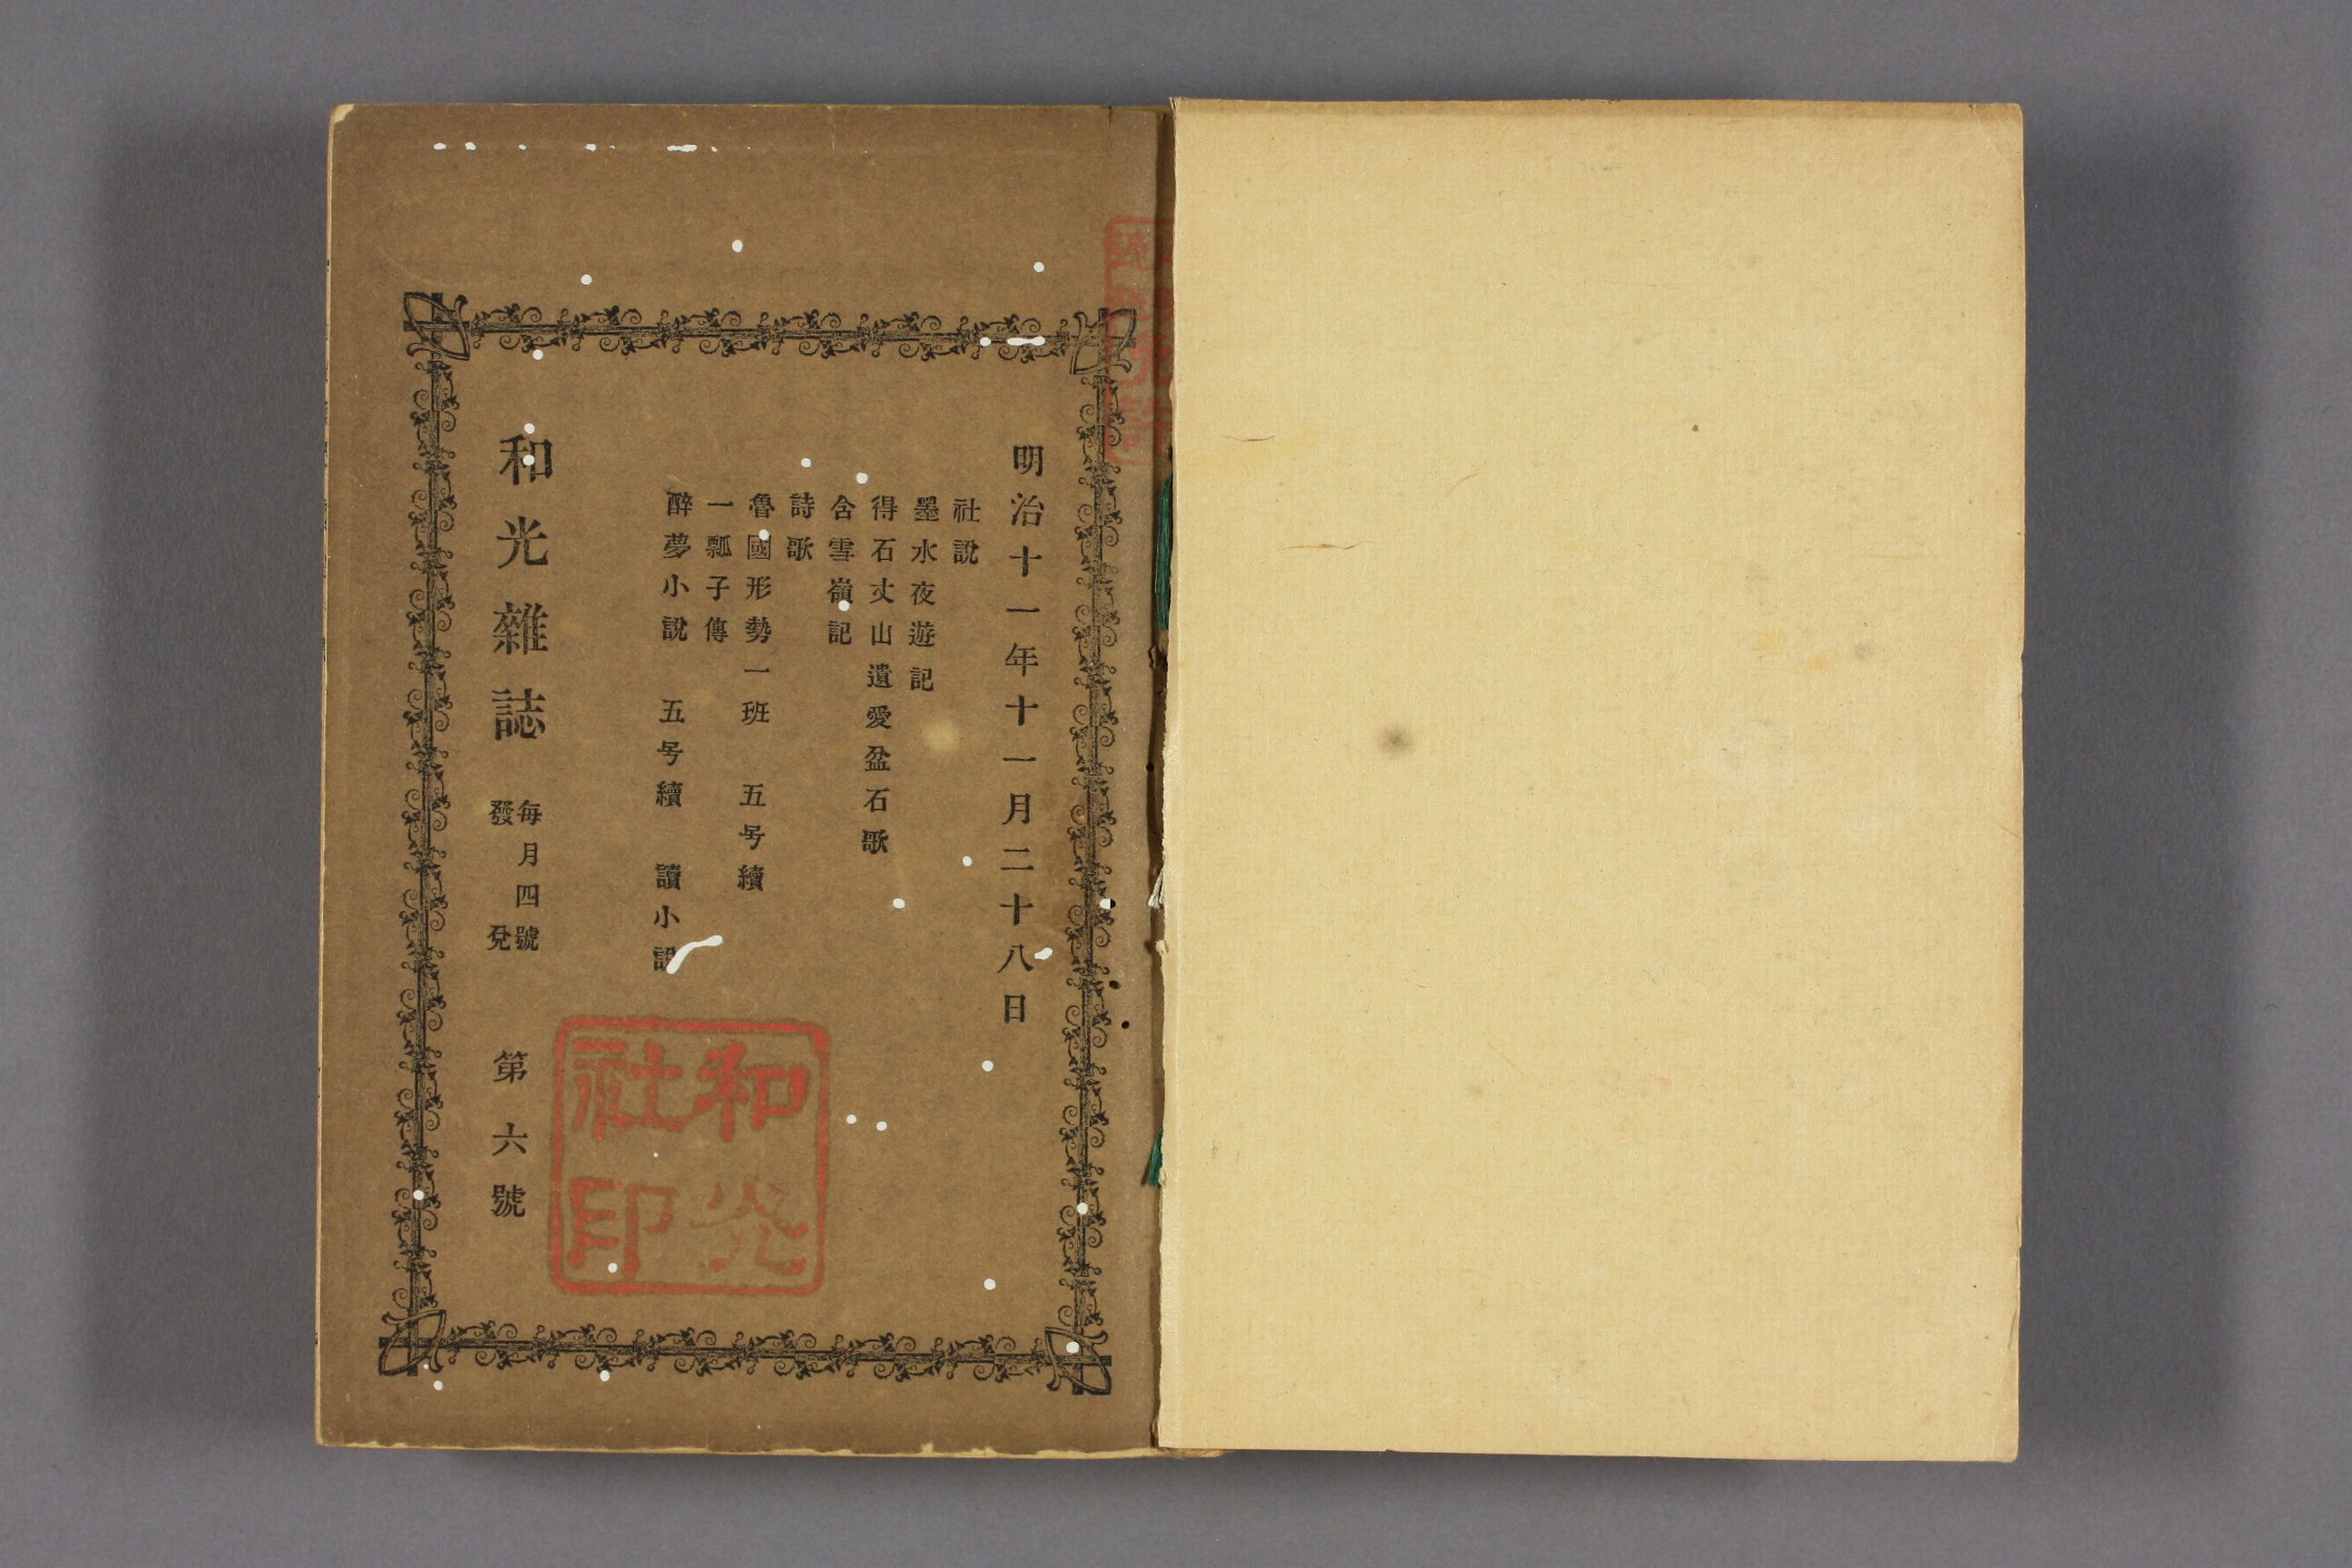 明治十一年十一月二十八日
社說
墨水夜遊記
得石丈山遺愛盆石歌
含雪嶺記
詩歌
魯國形勢一班　五号續
一瓢子傳
醉夢小說　五号續　讀小說
和光雜誌　每月四號發兌　第六號
和光社印